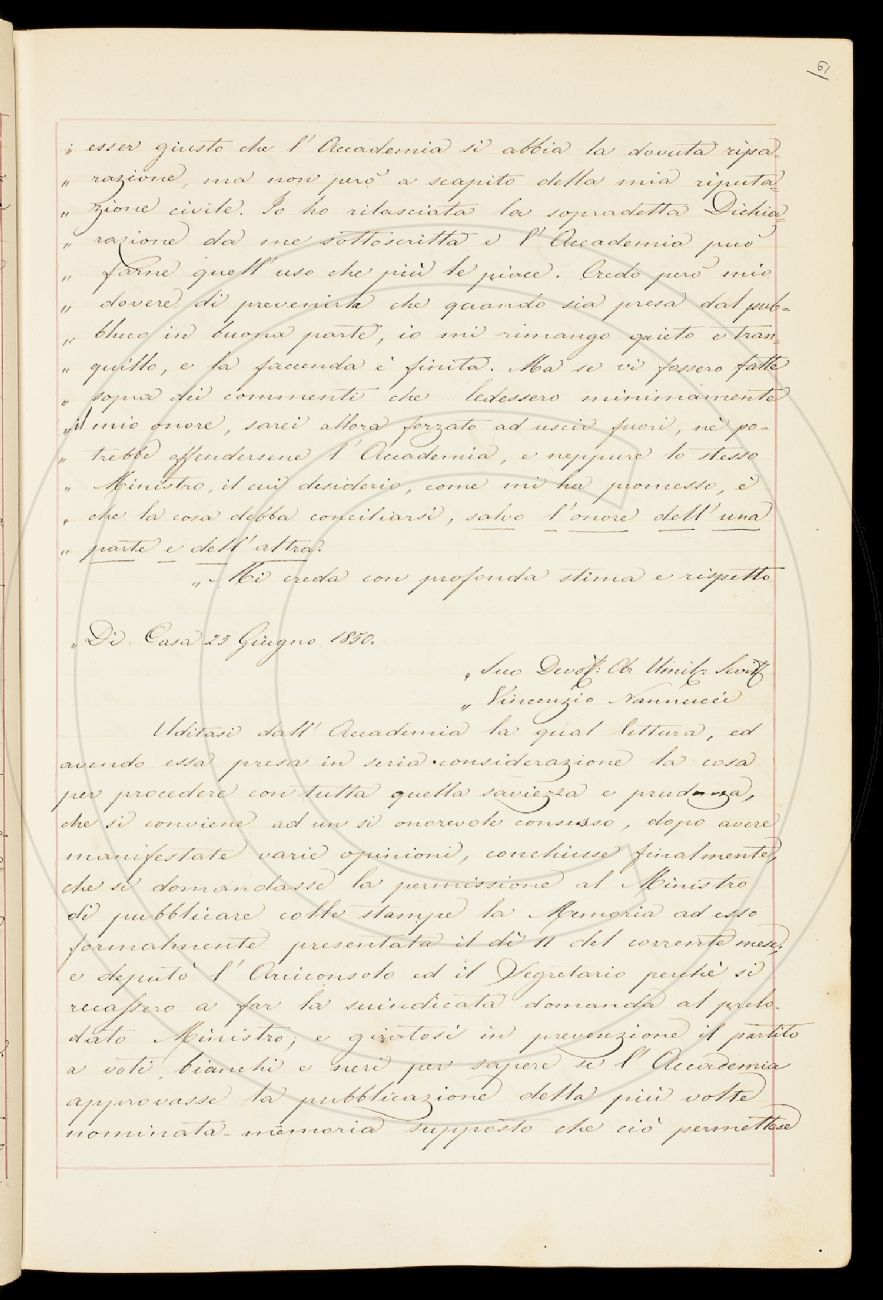 61
„ esser giusto che l'Accademia si abbia la dovuta ripa-
„ razione, ma non però a scapito della mia riputa-
„ zione civile. Io ho rilasciata la sopradetta Dichia-
„ razione da me sottoscritta e l'Accademia può
„ farne quell'uso che più le piace. Credo però mio
„ dovere di prevenirla che quando sia presa dal pub-
„ blico in buona parte, io mi rimango quieto e tran-
„ quillo, e la faccenda è finita. Ma se vi fossero fatte
„ sopra dei commenti che ledessero minimamente
„ il mio onore, sarei allora forzato ad uscir fuori, nè po-
„ trebbe offendersene l'Accademia, e neppure lo stesso
„ Ministro, il cui desiderio, come mi ha promesso, è
„ che la cosa debba conciliarsi, salvo l'onore dell'una
„ parte e dell'altra.
„ Mi creda con profonda stima e rispetto
„ Di Casa 25 Giugno 1850.
„ Suo Devot: Ob Umil: Servit
„ Vincenzio Nannucci
Uditasi dall'Accademia la qual lettura, ed
avendo essa presa in seria considerazione la cosa
per procedere con tutta quella saviezza e prudenza,
che si conviene ad un sì onorevole consesso, dopo avere
manifestate varie opinioni, conchiuse finalmente,
che si domandasse la permissione al Ministro
di pubblicare colle stampe la Memoria ad esso
formalmente presentata il dì 11 del corrente mese;
e deputò l'Arciconsolo ed il Segretario perchè si
recassero a far la suindicata domanda al prelo-
dato Ministro; e giratosi in prevenzione il partito
a voti bianchi e neri per sapere se l'Accademia
approvasse la pubblicazione della più volte
nominata memoria supposto che ciò permettesse